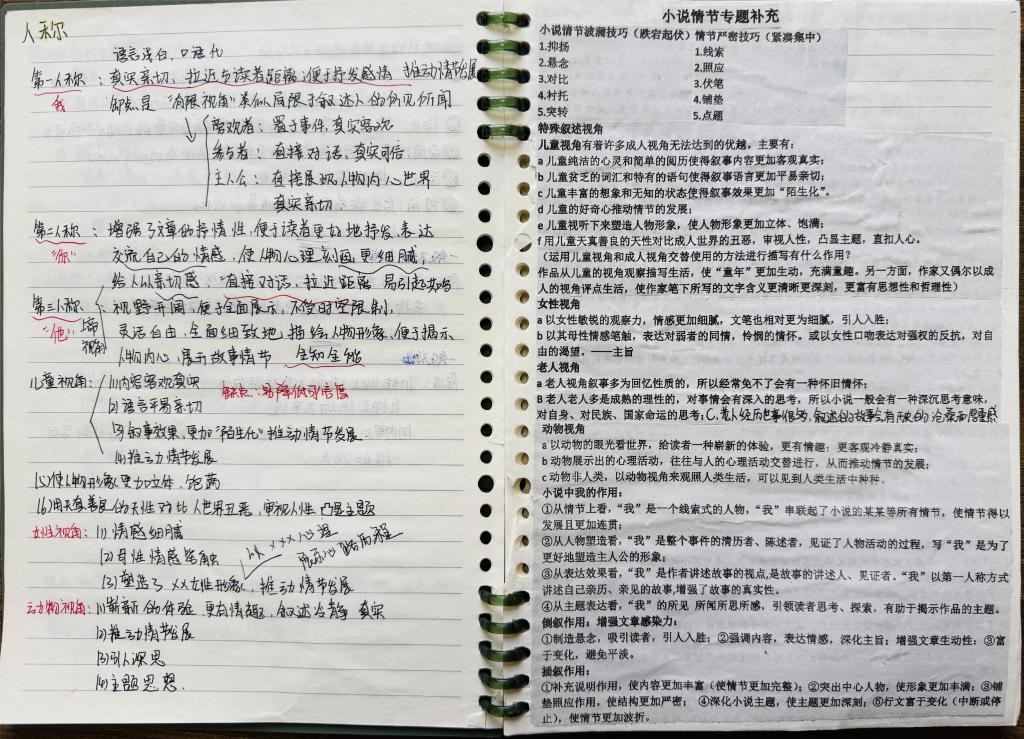 人称
语言浅白、口语化
第一人称：真实亲切、拉近与读者距离，便于抒发感情 推动情节发展
我 缺点是"有限视角"类似局限于叙述人的所见所闻
旁观者：置于事件，真实客观
参与者：直接对话，真实可信
主人公：直接展现人物内心世界
真实亲切
第二人称：增强了文章的抒情性，便于读者更好地抒发、表达
"你" 交流自己的情感，使人物心理刻画更细腻，
给人以亲切感：直接对话，拉近距离 易引起共鸣
第三人称：视野开阔，便于全面展示，不受时空限制，
"他" 上帝视角 灵活自由，全面细致地描绘人物形象，便于揭示
人物内心，展开故事情节 全知全能
儿童视角：(1)内容客观真实 缺点：易降低可信度
(2)语言平易亲切
(3)叙事效果，更加"陌生化"推动情节发展
(4)推动情节发展
(5)使人物形象更加立体、饱满
(6)用天真善良的天性对比人世界丑恶，审视人性凸显主题
女性视角：(1)情感细腻
(2)母性情感笔触 以×××心理
(3)塑造了××女性形象，推动情节发展 展示心路历程
动物视角：(1)崭新的体验，更有情趣，叙述冷静 真实
(2)推动情节发展
(3)引人深思
(4)主题思想.
小说情节专题补充
小说情节波澜技巧（跌宕起伏）情节严密技巧（紧凑集中）
1.抑扬 1.线索
2.悬念 2.照应
3.对比 3.伏笔
4.衬托 4.铺垫
5.突转 5.点题
特殊叙述视角
儿童视角有着许多成人视角无法达到的优越。主要有：
a 儿童纯洁的心灵和简单的阅历使得叙事内容更加客观真实；
b 儿童贫乏的词汇和特有的语句使得叙事语言更加平易亲切；
c 儿童丰富的想象和无知的状态使得叙事效果更加"陌生化"。
d 儿童的好奇心推动情节的发展；
e 儿童视听下来塑造人物形象，使人物形象更加立体、饱满；
f 用儿童天真善良的天性对比成人世界的丑恶，审视人性，凸显主题，直扣人心。
（运用儿童视角和成人视角交替使用的方法进行描写有什么作用？
作品从儿童的视角观察描写生活，使"童年"更加生动，充满童趣。另一方面，作家又偶尔以成
人的视角评点生活，使作家笔下所写的文字含义更清晰更深刻，更富有思想性和哲理性）
女性视角
a 以女性敏锐的观察力，情感更加细腻，文笔也相对更为细腻，引人入胜；
b 以其母性情感笔触，表达对弱者的同情，怜悯的情怀。或以女性口吻表达对强权的反抗，对自
由的渴望。——主旨
老人视角
a 老人视角叙事多为回忆性质的，所以经常免不了会有一种怀旧情怀；
B 老人老人多是成熟的理性的，对事情会有深入的思考，所以小说一般会有一种深沉思考意味，
对自身、对民族、国家命运的思考；C.老人经历世事但多，叙述的故事会有历史的沧桑和厚重感
动物视角
a 以动物的眼光看世界，给读者一种崭新的体验，更有情趣；更客观冷静真实；
b 动物展示出的心理活动，往往与人的心理活动交替进行，从而推动情节的发展；
c 动物非人类，以动物视角来观照人类生活，可以见到人类生活中种种。
小说中我的作用：
①从情节上看，"我"是一个线索式的人物，"我"串联起了小说的某某等所有情节，使情节得以
发展且更加连贯；
②从人物塑造看，"我"是整个事件的清历者、陈述者，见证了人物活动的过程，写"我"是为了
更好地塑造主人公的形象；
③从表达效果看，"我"是作者讲述故事的视点,是故事的讲述人、见证者。"我"以第一人称方式
讲述自己亲历、亲见的故事,增强了故事的真实性。
④从主题表达看，"我"的所见 所闻所思所感，引领读者思考、探索，有助于揭示作品的主题。
倒叙作用：增强文章感染力：
①制造悬念，吸引读者，引人入胜；②强调内容，表达情感，深化主旨；增强文章生动性：③富
于变化，避免平淡。
插叙作用：
①补充说明作用，使内容更加丰富（使情节更加完整）；②突出中心人物，使形象更加丰满；③铺
垫照应作用，使结构更加严密； ④深化小说主题，使主题更加深刻；⑤行文富于变化（中断或停
止），使情节更加波折。